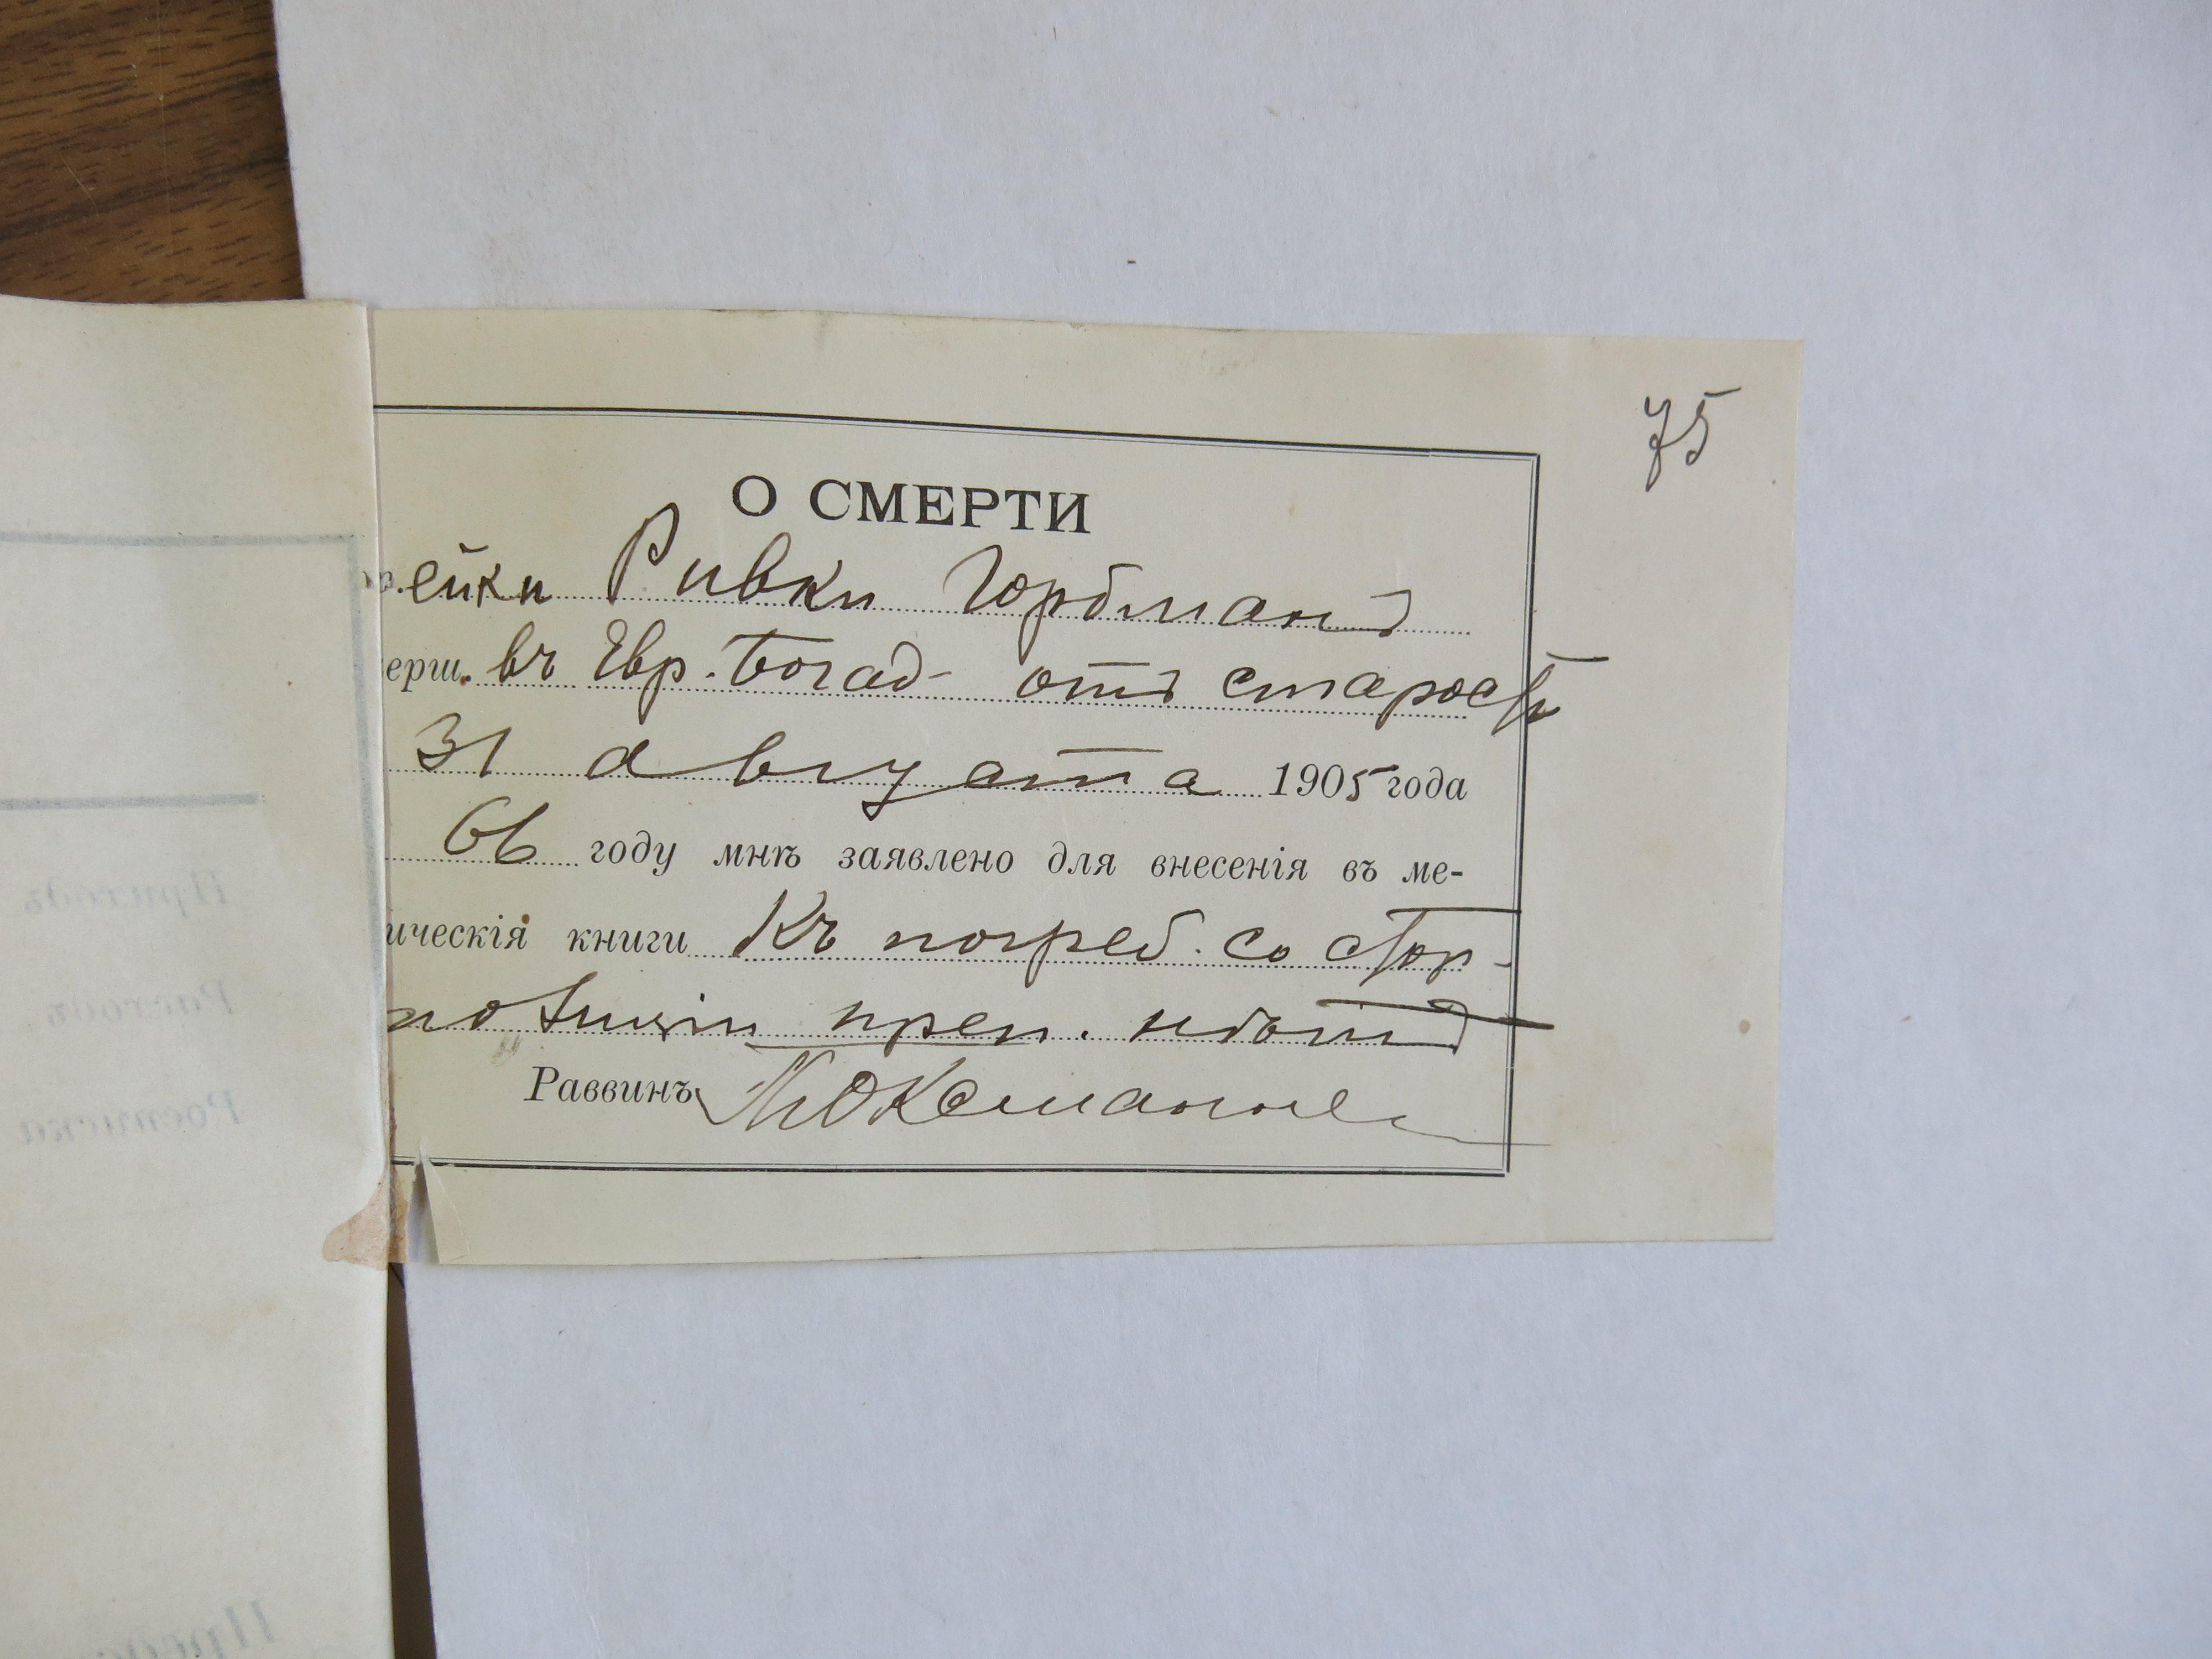 75
О СМЕРТИ
ейки Ривки Горбманъ
ерш. въ Евр. Богад- отъ старости
31 августа 1905 года
66 году мнѣ заявлено для внесенія въ ме-
ическія книги Къ погреб. со стор-
полиціи преп. нѣтъ
Раввинъ
Приходъ
Расходъ
Росписка